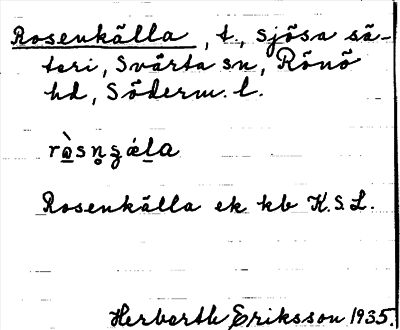 Rosenkälla, t., Sjösa sä-
teri, Svärta sn, Rönö
hd, Söderm. l.
Rosenkälla ek kb K.S.L.
Herberth Eriksson 1935.